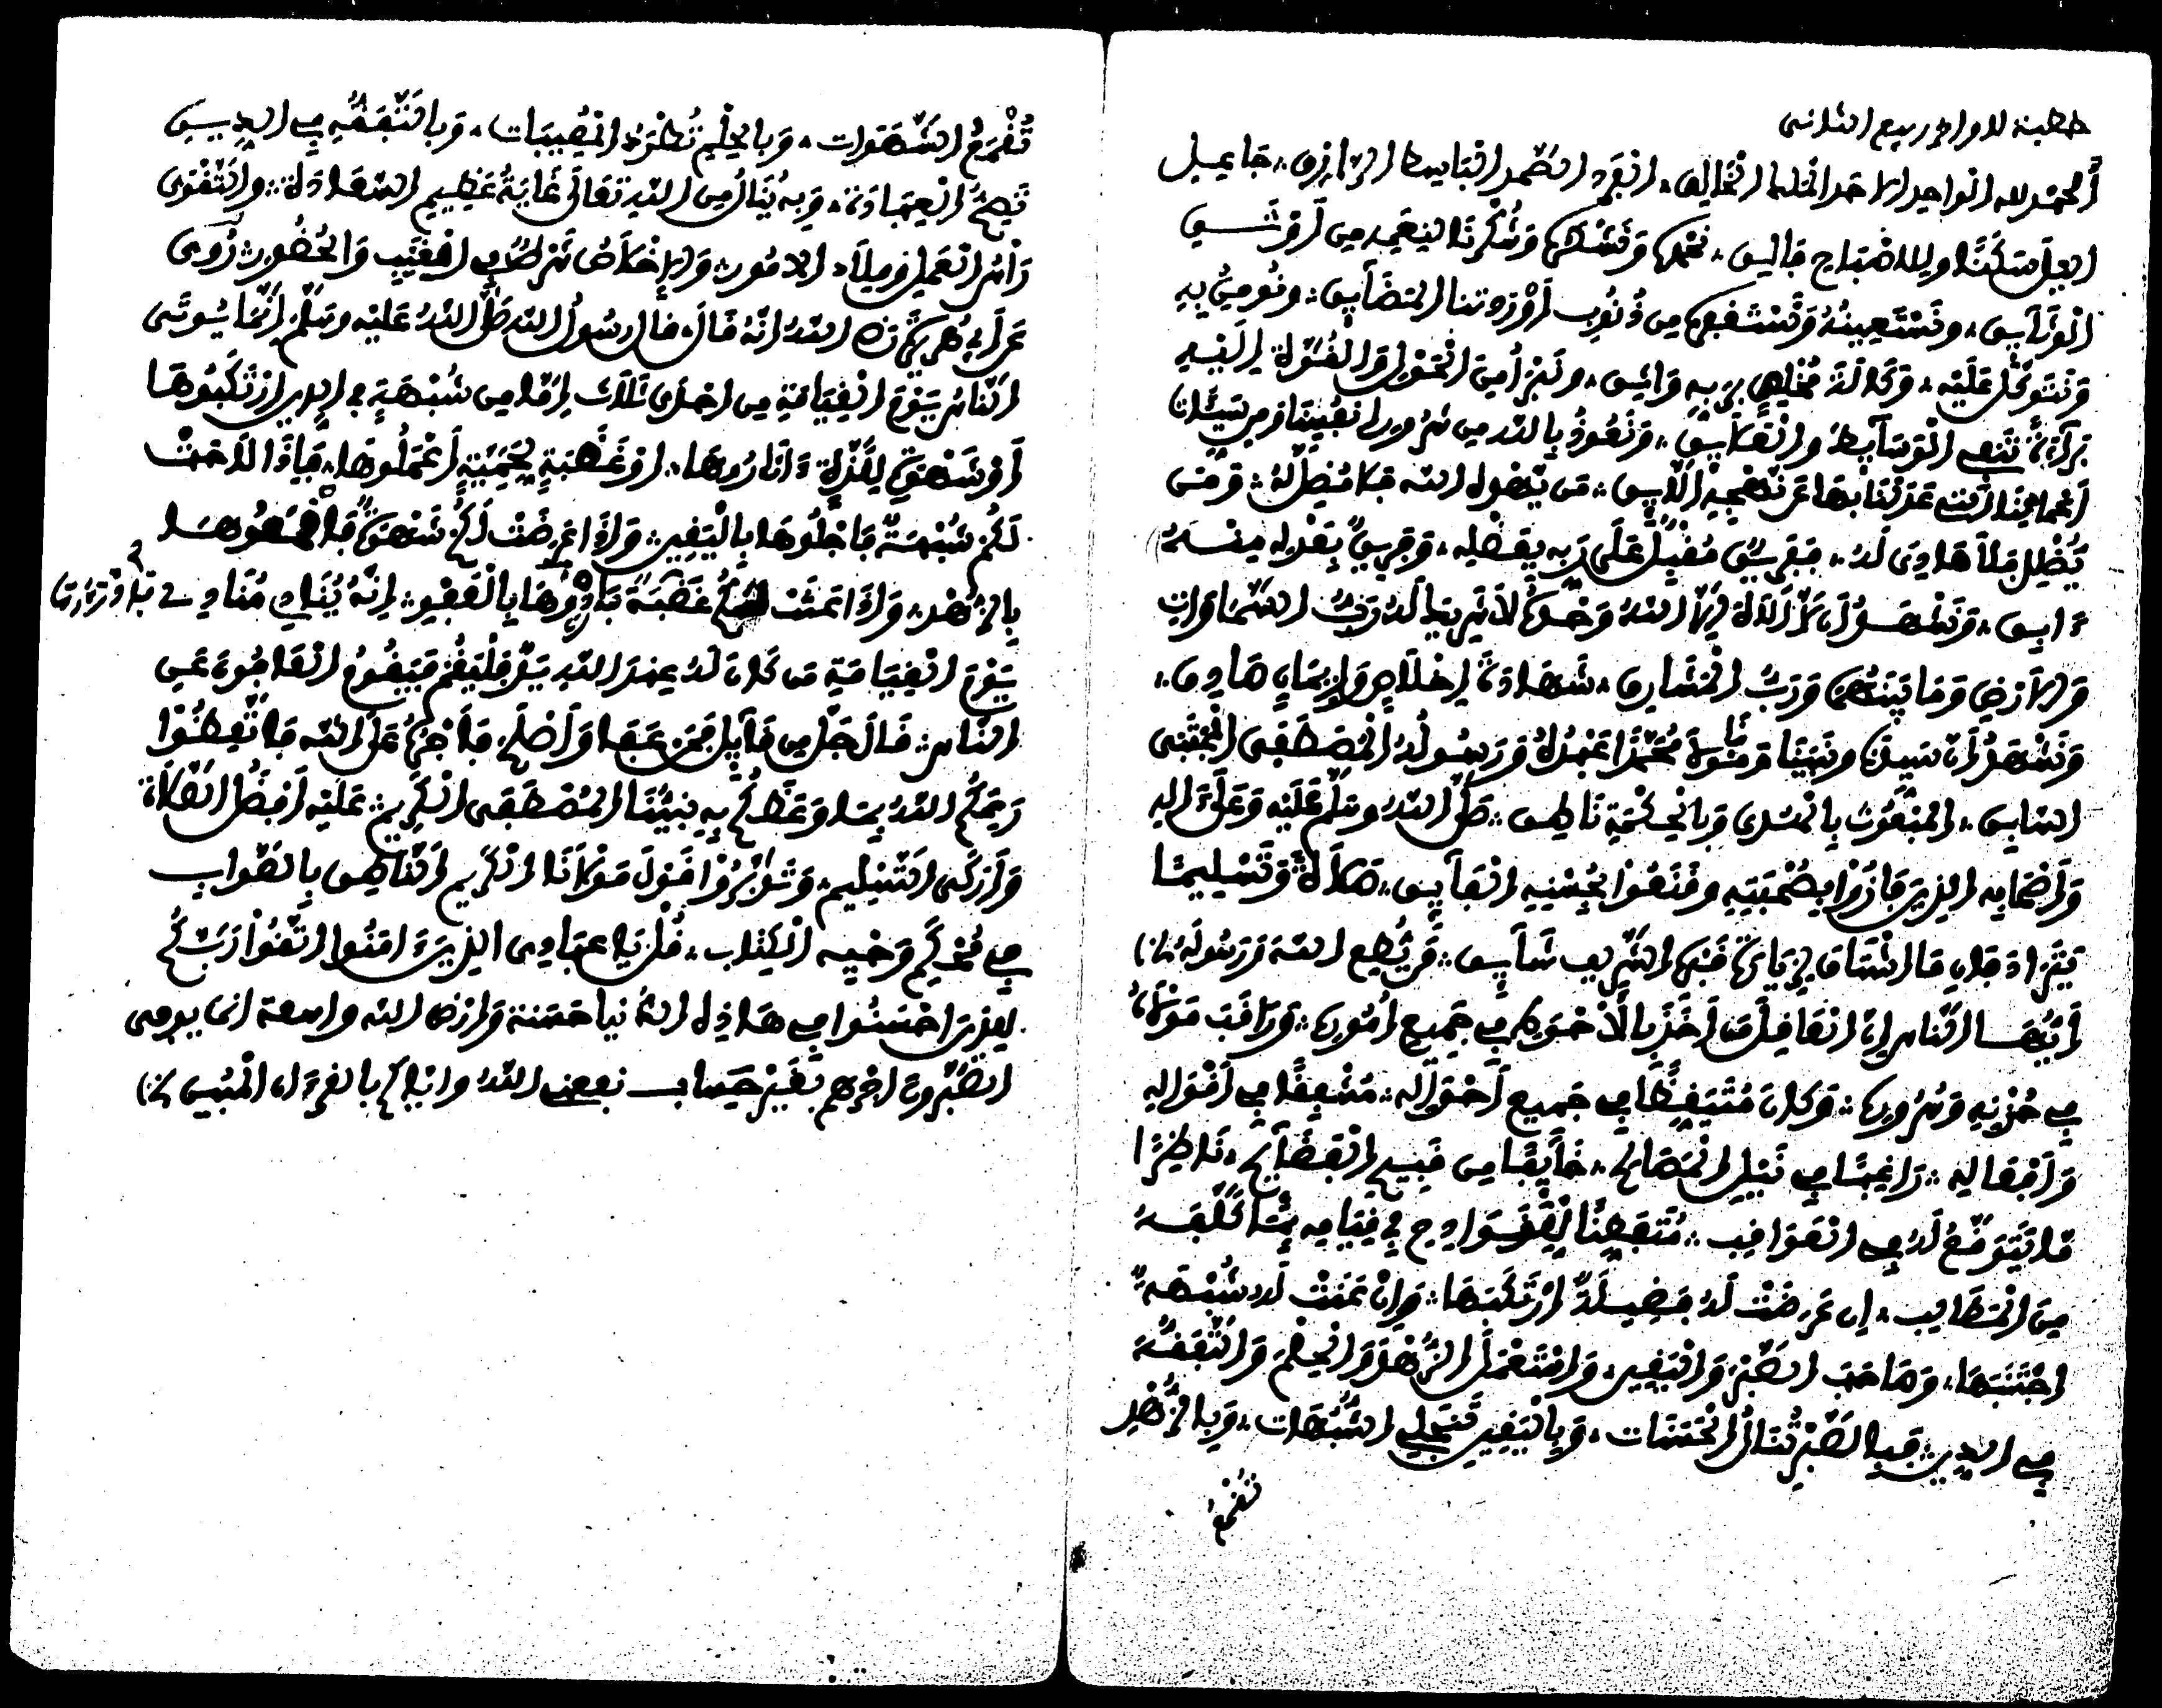 خطبة للاواخر ربيع الثاني
ألحمد لله الواحد الاحد الملك الخالق، الفرد الصمد الباسط الرازق، جاعل
اليل سكنا وللاصباح فالق، نحمده ونشكره وشكرنا لنعمه من أوثق
الوثائق، ونستعينه ونستغفره من ذنوب أوردتنا المضائق، ونومن به
ونتوكل عليه، وكالة مخلص بربه واثق، ونبرأ من الحول والقوة إليه
براءة تنفي الوسائط والعلائق، ونعوذ بالله من شرور انفسنا ومن سيئات
أعمالنا التي عدلنا بها عن نهجه اللائق، من يهد الله فلا مضل له، ومن
يضلل فلا هادي له، ففريق مقبل على ربه بفضله، وفريق بعدله منه
ءابق، ونشهد أن لا إلاه إلا الله وحده لا شريك له رب السماوات
والارض وما بينهما ورب المشارق، شهادة إخلاص وإيمان صادق،
ونشهد أن سيدنا ونبينا ومولانا محمدا عبده ورسوله المصطفى المجتبى
السابق، المبعوث بالهدى وبالحكمة ناطق، صلى الله وسلم عليه وعلى ءاله
وأصحابه الذين فازوا بصحبته ومتعوا بحسنه الفائق، صلاة وتسليما
تترادفان ما اشتاق لزيارة قبره الشريف شائق، من يطع الله ورسوله الخ
أيها الناس إن العاقل من أخذ بالاحوط في جميع أموره، وراقب مولاه
في حزنه وسروره، وكان متيقظا في جميع أحواله، مشفقا في أقواله
وأفعاله، راغبا في نيل المصالح، خائفا من قبيح الفضائح، ناظرا
ما تتوقع له في العواقب، متفطنا للقوادح في قيامه بما كلفه
من المطالب، إن عرضت له فضيلة ارتكبها، وإن عنت له شبهة
اجتنبها، وصاحب الصبر واليقين، واستعمل الزهد والحلم والتفقه
في الدين، فبالصبر تنال الحسنات، وباليقين تنجلي الشبهات، وبالزهد
تقمع
تقمع الشهوات، وبالحلم تطرد المصيبات، وبالتفقه في الدين
تصح العبادة، وبه ينال من الله تعالى غاية عظيم السعادة، والتقوى
رأس العمل وملاك الامور، والإخلاص شرط في الغيب والحضور، روى
عن أبي هريرة رضي الله انه قال قال رسول الله صلى الله عليه وسلم إنما يوتى
الناس يوم القيامة من احدى ثلاث إما من شبهة في الدين ارتكبوها
أو شهوة للذة ءاثروها، او غضبة لحمية أعملوها، فإذا لاحت
لكم شبهة فاجلوها باليقين، وإذا عرضت لكم شهوة فاقمعوها
بالزهد، وإذا عنت لكم غضبة فادرءوها بالعفو، إنه ينادي مناد
يوم القيامة من كان له عند الله يد فليقم فيقوم العافون عن
الناس، قال جل من قائل فمن عفا وأصلح فأجره على الله فاتعظوا
رحمكم الله بما وعظكم به نبينا المصطفى الكريم، عليه أفضل الصلاة
وأزكى التسليم، وتدبروا قول مولانا الكريم الناطق بالصواب
في محكم وحيه الكتاب، قل يا عبادي الذين ءامنوا اتقوا ربكم
للذين احسنوا في هذه الدنيا حسنة وأرض الله واسعة انما يوفى
الصبرون اجرهم بغير حساب نفعني الله واياكم بالقرءان المبين الخ